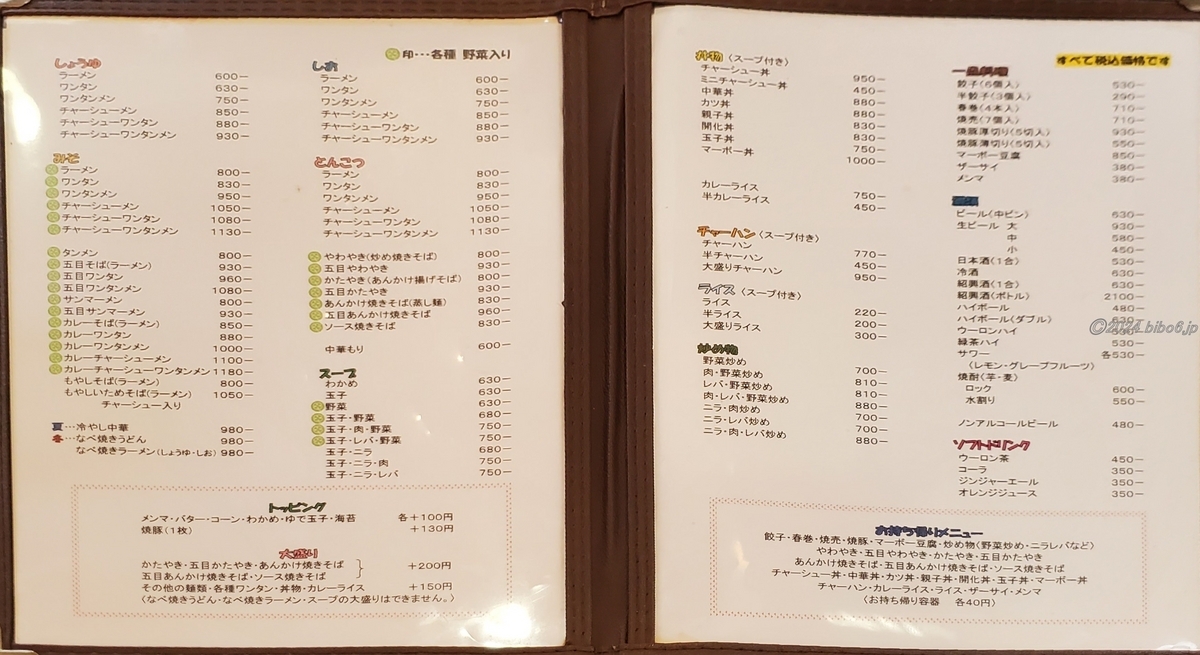 印…各種 野菜入り
しょうゆ
ラーメン 600ー
ワンタン 630ー
ワンタンメン 750ー
チャーシューメン 850ー
チャーシューワンタン 880ー
チャーシューワンタンメン 930ー
みそ
ラーメン 800ー
ワンタン 830ー
ワンタンメン 950ー
チャーシューメン 1050ー
チャーシューワンタン 1080ー
チャーシューワンタンメン 1130ー
タンメン 800ー
五目そば(ラーメン) 930ー
五目ワンタン 960ー
五目ワンタンメン 1080ー
サンマーメン 800ー
五目サンマーメン 930ー
カレーそば(ラーメン) 850ー
カレーワンタン 880ー
カレーワンタンメン 1000ー
カレーチャーシューメン 1100ー
カレーチャーシューワンタンメン 1180ー
もやしそば(ラーメン) 800ー
もやしいためそば(ラーメン) 1050ー
チャーシュー入り
夏…冷やし中華 980ー
冬…なべ焼きうどん 980ー
なべ焼きラーメン(しょうゆ・しお) 980ー
しお
ラーメン 600ー
ワンタン 630ー
ワンタンメン 750ー
チャーシューメン 850ー
チャーシューワンタン 880ー
チャーシューワンタンメン 930ー
とんこつ
ラーメン 800ー
ワンタン 830ー
ワンタンメン 950ー
チャーシューメン 1050ー
チャーシューワンタン 1080ー
チャーシューワンタンメン 1130ー
やわやき(炒め焼きそば) 800ー
五目やわやき 930ー
かたやき(あんかけ揚げそば) 800ー
五目かたやき 930ー
あんかけ焼きそば(蒸し麺) 830ー
五目あんかけ焼きそば 960ー
ソース焼きそば 830ー
中華もり 600ー
スープ
わかめ 630ー
玉子 630ー
野菜 630ー
玉子・野菜 680ー
玉子・肉・野菜 750ー
玉子・レバ・野菜 750ー
玉子・ニラ 680ー
玉子・ニラ・肉 750ー
玉子・ニラ・レバ 750ー
トッピング
メンマ・バター・コーン・わかめ・ゆで玉子・海苔 各+100円
焼豚(1枚) +130円
大盛り
かたやき・五目かたやき・あんかけ焼きそば
五目あんかけ焼きそば・ソース焼きそば +200円
その他の麺類・各種ワンタン・丼物・カレーライス +150円
(なべ焼きうどん・なべ焼きラーメン・スープの大盛りはできません。)
すべて税込価格です
丼物 (スープ付き)
チャーシュー丼 950ー
ミニチャーシュー丼 450ー
中華丼 880ー
カツ丼 880ー
親子丼 830ー
開化丼 830ー
玉子丼 750ー
マーボー丼 1000ー
カレーライス 750ー
半カレーライス 450ー
チャーハン (スープ付き)
チャーハン 770ー
半チャーハン 450ー
大盛りチャーハン 950ー
ライス (スープ付き)
ライス 220ー
半ライス 200ー
大盛りライス 300ー
炒め物
野菜炒め 700ー
肉・野菜炒め 810ー
レバ・野菜炒め 810ー
肉・レバ・野菜炒め 880ー
ニラ・肉炒め 700ー
ニラ・レバ炒め 700ー
ニラ・肉・レバ炒め 880ー
一品料理
餃子(6個入) 530ー
半餃子(3個入) 290ー
春巻(4本入) 710ー
焼売(7個入) 710ー
焼豚厚切り(5切入) 930ー
焼豚薄切り(5切入) 550ー
マーボー豆腐 850ー
ザーサイ 380ー
メンマ 380ー
ビール(中ビン) 630ー
生ビール 大 930ー
中 580ー
小 450ー
日本酒(1合) 530ー
冷酒 630ー
紹興酒(1合) 630ー
紹興酒(ボトル) 2100ー
ハイボール 480ー
ハイボール(ダブル) 630ー
ウーロンハイ
緑茶ハイ 530ー
サワー 各530ー
(レモン・グレープフルーツ)
焼酎(芋・麦)
ロック 600ー
水割り 550ー
ノンアルコールビール 480ー
ソフトドリンク
ウーロン茶 450ー
コーラ 350ー
ジンジャーエール 350ー
オレンジジュース 350ー
お持ち帰りメニュー
餃子・春巻・焼売・焼豚・マーボー豆腐・炒め物(野菜炒め・ニラレバなど)
やわやき・五目やわやき・かたやき・五目かたやき
あんかけ焼きそば・五目あんかけ焼きそば・ソース焼きそば
チャーシュー丼・中華丼・カツ丼・親子丼・開化丼・玉子丼・マーボー丼
チャーハン・カレーライス・ライス・ザーサイ・メンマ
(お持ち帰り容器 各40円)
©2024 bibo6.jp